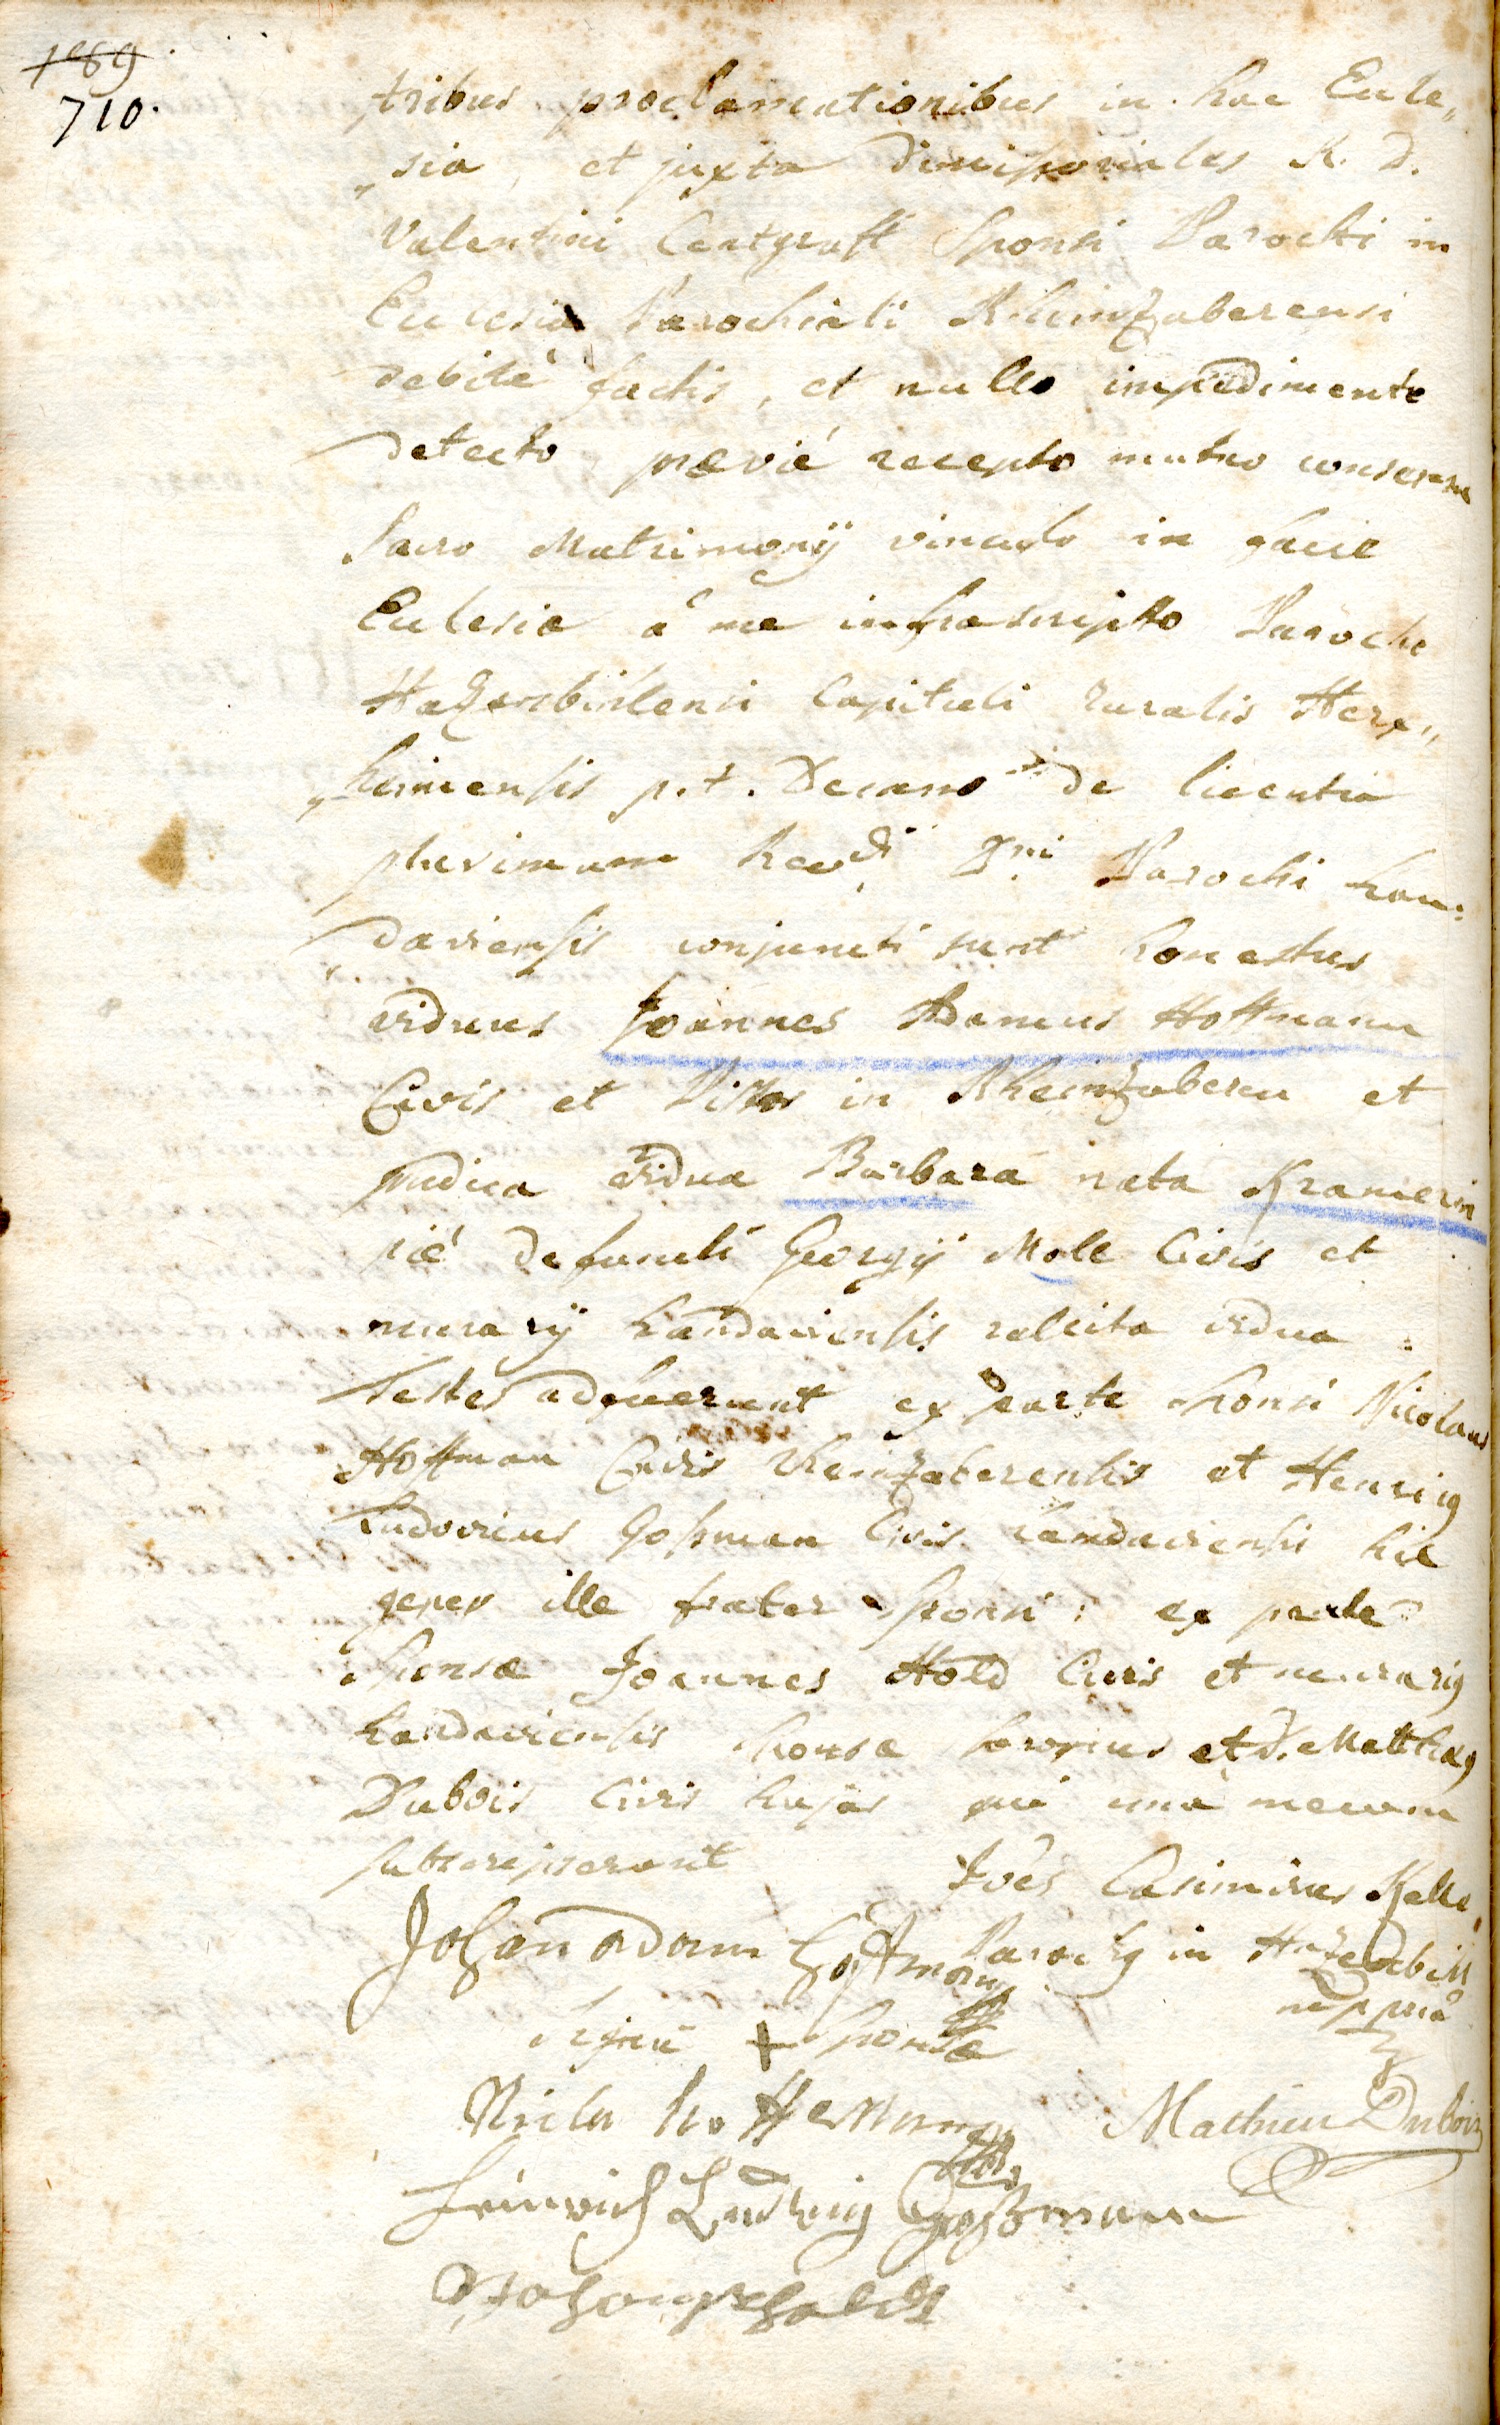 189
710.
tribus proclamationibus in hac Eccle„
„sia, et juxta dimissoriales R. D.
Valentini Centgraff Sponsi Parochi in
Ecclesia Parochiali Rheinzaberensi
debitè factis, et nullo impedimento
detecto, prævié recepto mutuo consensu
Sacro Matrimonÿ vinculo in facie
Ecclesiæ à me infrascripto Parocho
Hazenbühlensi Capituli ruralis Herx„
„heimensis p. t. Decano de licentia
plurimum Revdi Dni Parochi Lan:
„daviensis conjuncti sunt honestus
viduus Joannes Adamus Hoffmann
Civis et Pistor in Rheinzaberen et
pudica vidua Barbara nata Kramerin
pié defuncti Georgÿ Moll Civis et
murarÿ Landaviensis relicta vidua.
Testes adfuerunt ex parte sponsi Nicolaus
Hoffman Civis Rheinzaberensis et Henricq
Ludovicus Gossman Civis Landaviensis hic
gener ille frater sponsi: ex parte
sponsæ Joannes Hold Civis et murariq
Landaviensis sponsæ sororius et D. Matthæq
Dubois Civis hujas qui unà mecum
subscripserunt
Joês Casimirus Kelle
Johan Adam Hoffman
Parochq in Hazenbühl
mppriâ
Signū + Sponsæ
Nicla Hoffemann
Mathieu Dubois
Heinrich Ludwig Goßmann
Johan